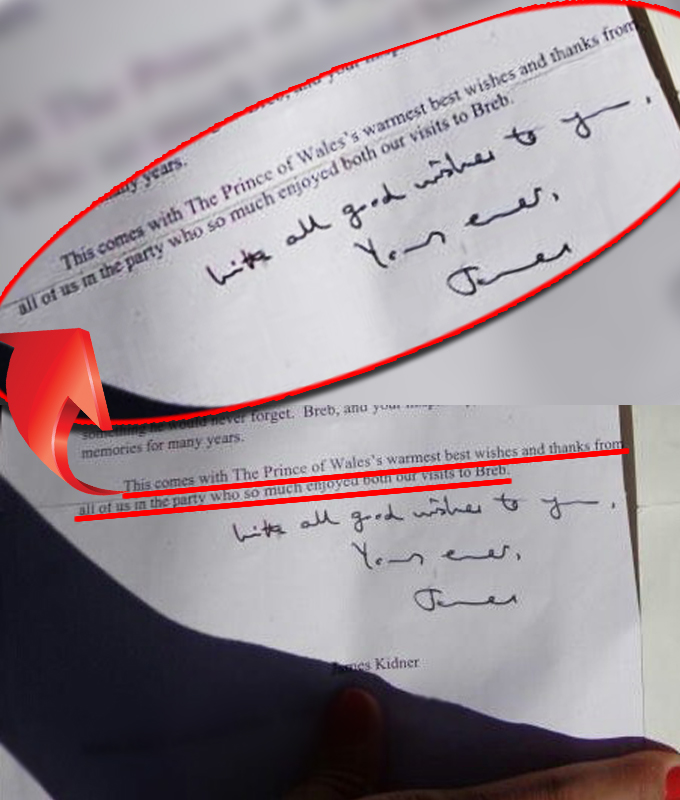 , and your
many years.
This comes with The Prince of Wales's warmest best wishes and thanks from
all of us in the party who so much enjoyed both our visits to Breb.
With all good wishes to you,
Yours ever,
James
something he would never forget. Breb, and your
memories for many years.
This comes with The Prince of Wales's warmest best wishes and thanks from
all of us in the party who so much enjoyed both our visits to Breb.
With all good wishes to you,
Yours ever,
James
James Kidner